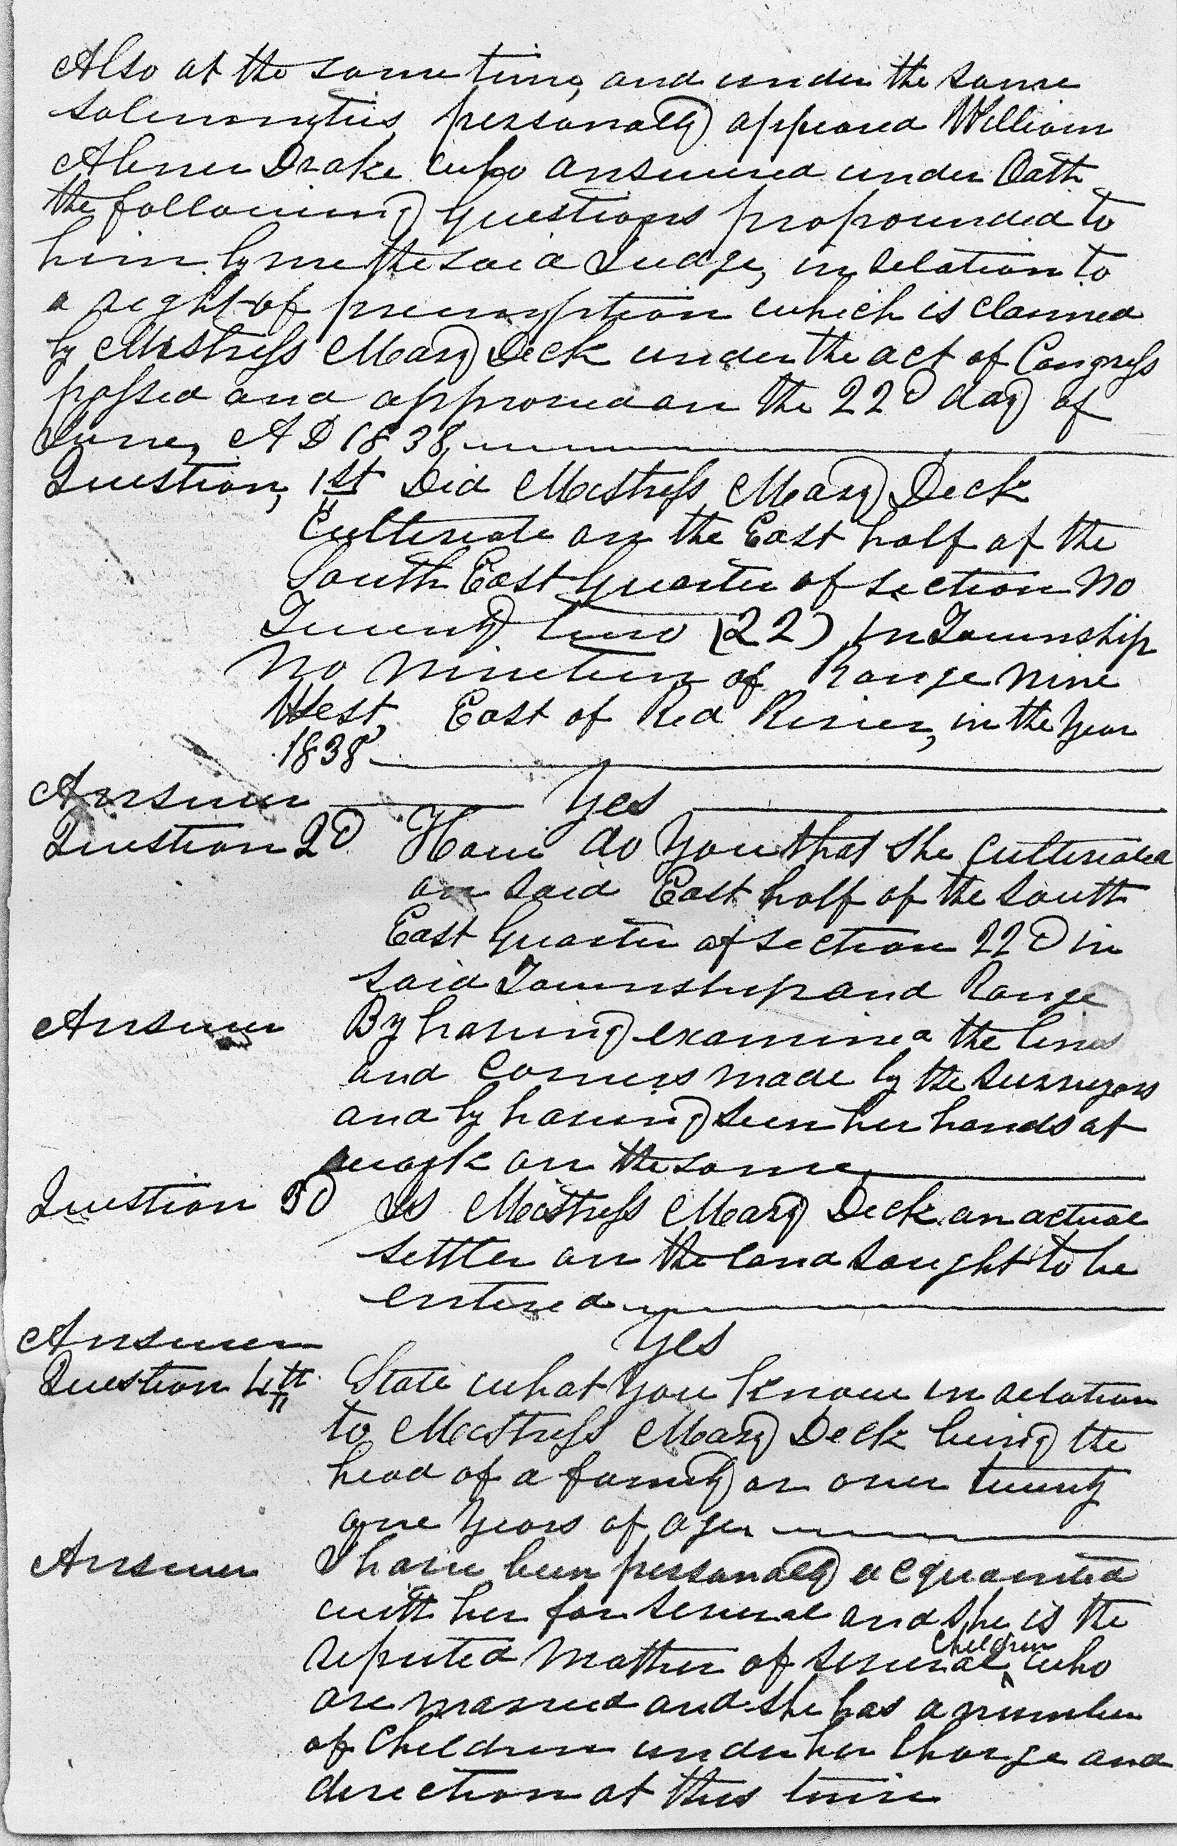 Also at the same time, and under the same
solemnyties personally appeared William
Abner Drake who answered under Oath
the following Questions propounded to
him by me the said Judge, in relation to
a right of preemption which is claimed
by Mistress Mary Deck under the act of Congress
passed and approved on the 22D day of
June, A D 1838,
Question, 1st Did Mistress Mary Deck
Cultivate on the East half of the
South East Quarter of section No
Twenty two (22) in Township
No nineteen of Range nine
West, East of Red River, in the Year
1838
Answer Yes
Question 2D How do You that she cultivated
on said East half of the South
East Quarter of section 22D in
said Township and Range
Answer By having examined the lines
and Corners made by the surveyors
and by having seen her hands at
work on the same
Question 3D Is Mistress Mary Deck an actual
settler on the land sought to be
entered
Answer Yes
Question 4th State what You know in relation
to Mistress Mary Deck being the
head of a family or over twenty
one Years of age
Answer I have been personally acquainted
with her for several and she is the
reputed mother of several Children who
are married and she has a number
of Children under her Charge and
direction at this time